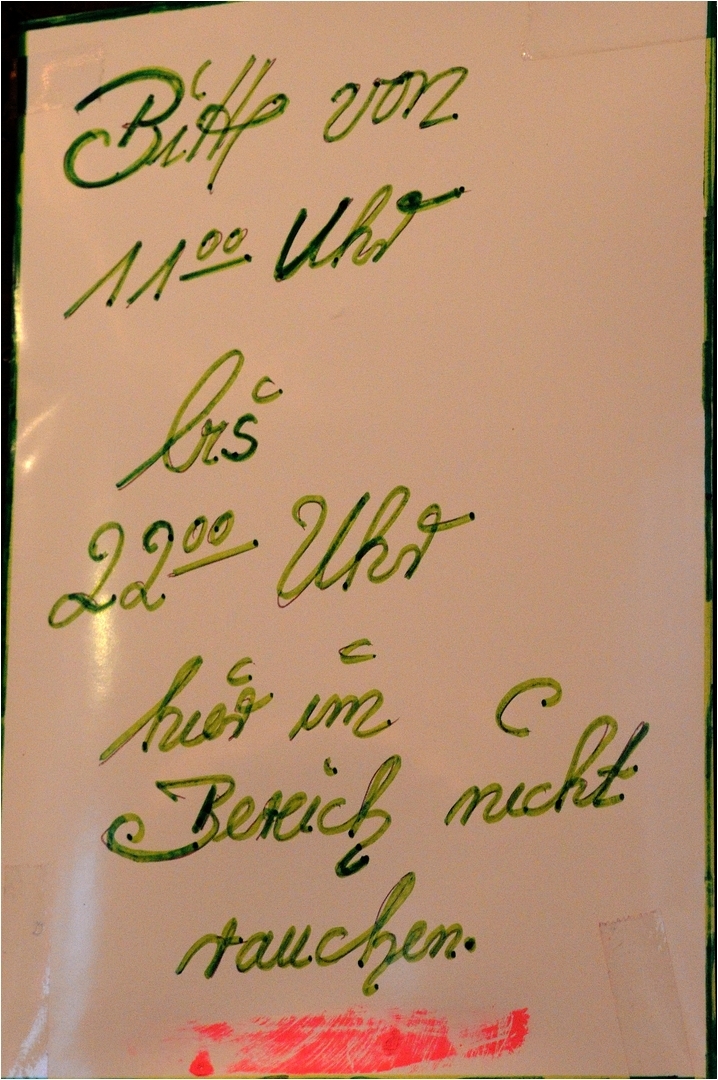 Bitte von
11⁰⁰ Uhr
bis
22⁰⁰ Uhr
hier im
Bereich nicht
rauchen.